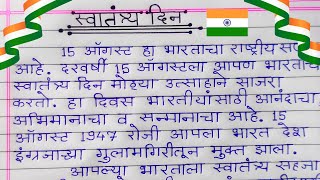 स्वातंत्र्य दिन
15 ऑगस्ट हा भारताचा राष्ट्रीय सण
आहे. दरवर्षी 15 ऑगस्टला आपण भारतीय
स्वातंत्र्य दिन मोठ्या उत्साहाने साजरा
करतो. हा दिवस भारतीयांसाठी आनंदाचा,
अभिमानाचा व सन्मानाचा आहे. 15
ऑगस्ट 1947 रोजी आपला भारत देश
इंग्रजांच्या गुलामगिरीतून मुक्त झाला.
आपल्या भारताला स्वातंत्र्य सहजा